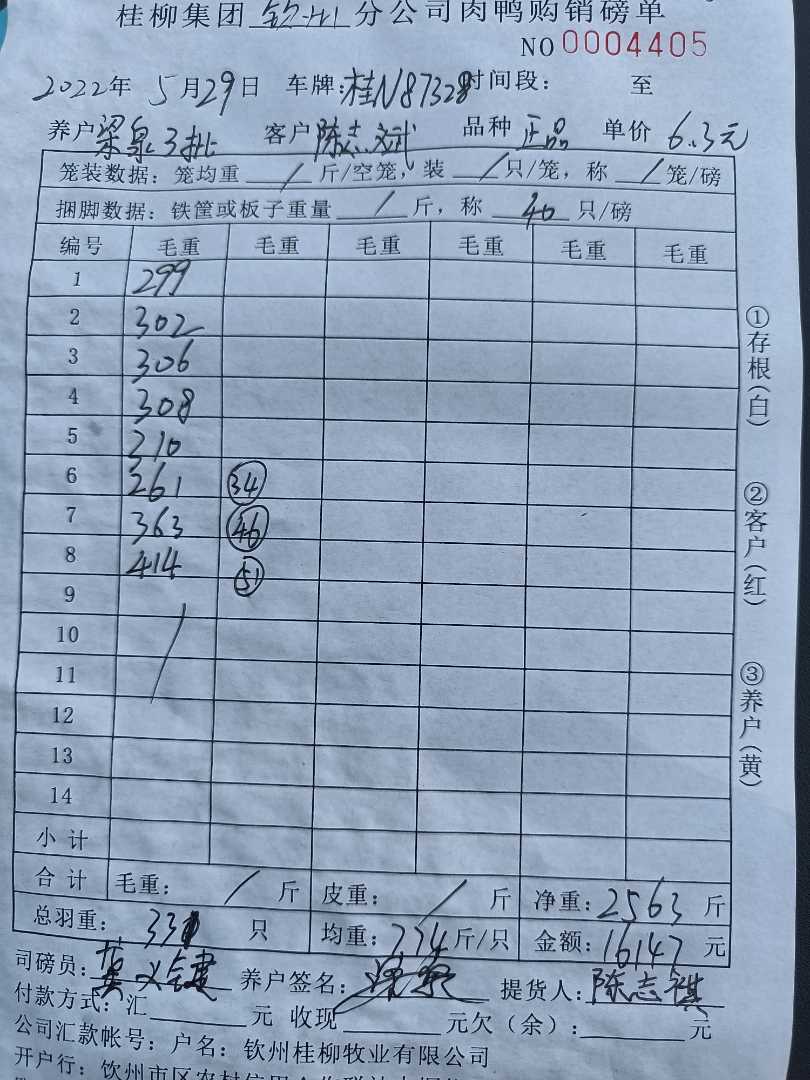 桂柳集团钦州分公司肉鸭购销磅单
NO 0004405
2022年 5月29日 车牌:桂N87328时间段: 至
养户梁泉3批 客户陈志斌 品种正品 单价6.3元
笼装数据: 笼均重 / 斤/空笼, 装 / 只/笼, 称 / 笼/磅
捆脚数据: 铁筐或板子重量 / 斤, 称 40 只/磅
编号 毛重 毛重 毛重 毛重 毛重 毛重
1 299
2 302
3 306
4 308
5 310
6 261 34
7 363 46
8 414 51
9
10
11
12
13
14
小计
合计 毛重: / 斤 皮重: / 斤 净重: 2563 斤
总羽重: 331 只 均重: 7.74 斤/只 金额: 16147 元
司磅员: 黄 养户签名: 梁泉 提货人: 陈志祺
付款方式: 汇 元 收现 元欠(余): 元
公司汇款帐号: 户名: 钦州桂柳牧业有限公司
开户行: 钦州市区农村信用合作联社
①存根(白)
②客户(红)
③养户(黄)